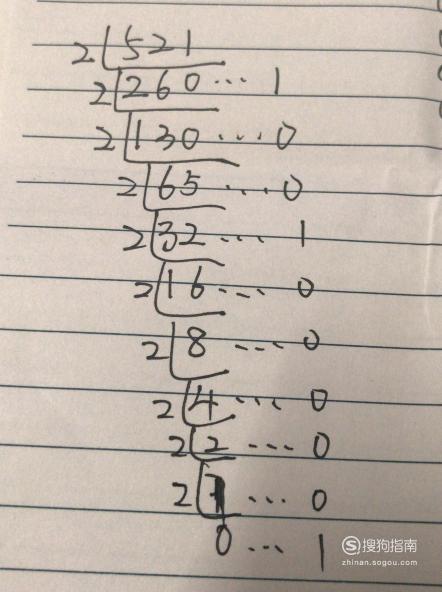 2 521
2 260 ... 1
2 130 ... 0
2 65 ... 0
2 32 ... 1
2 16 ... 0
2 8 ... 0
2 4 ... 0
2 2 ... 0
2 1 ... 0
0 ... 1
搜狗指南
zhinan.sogou.com